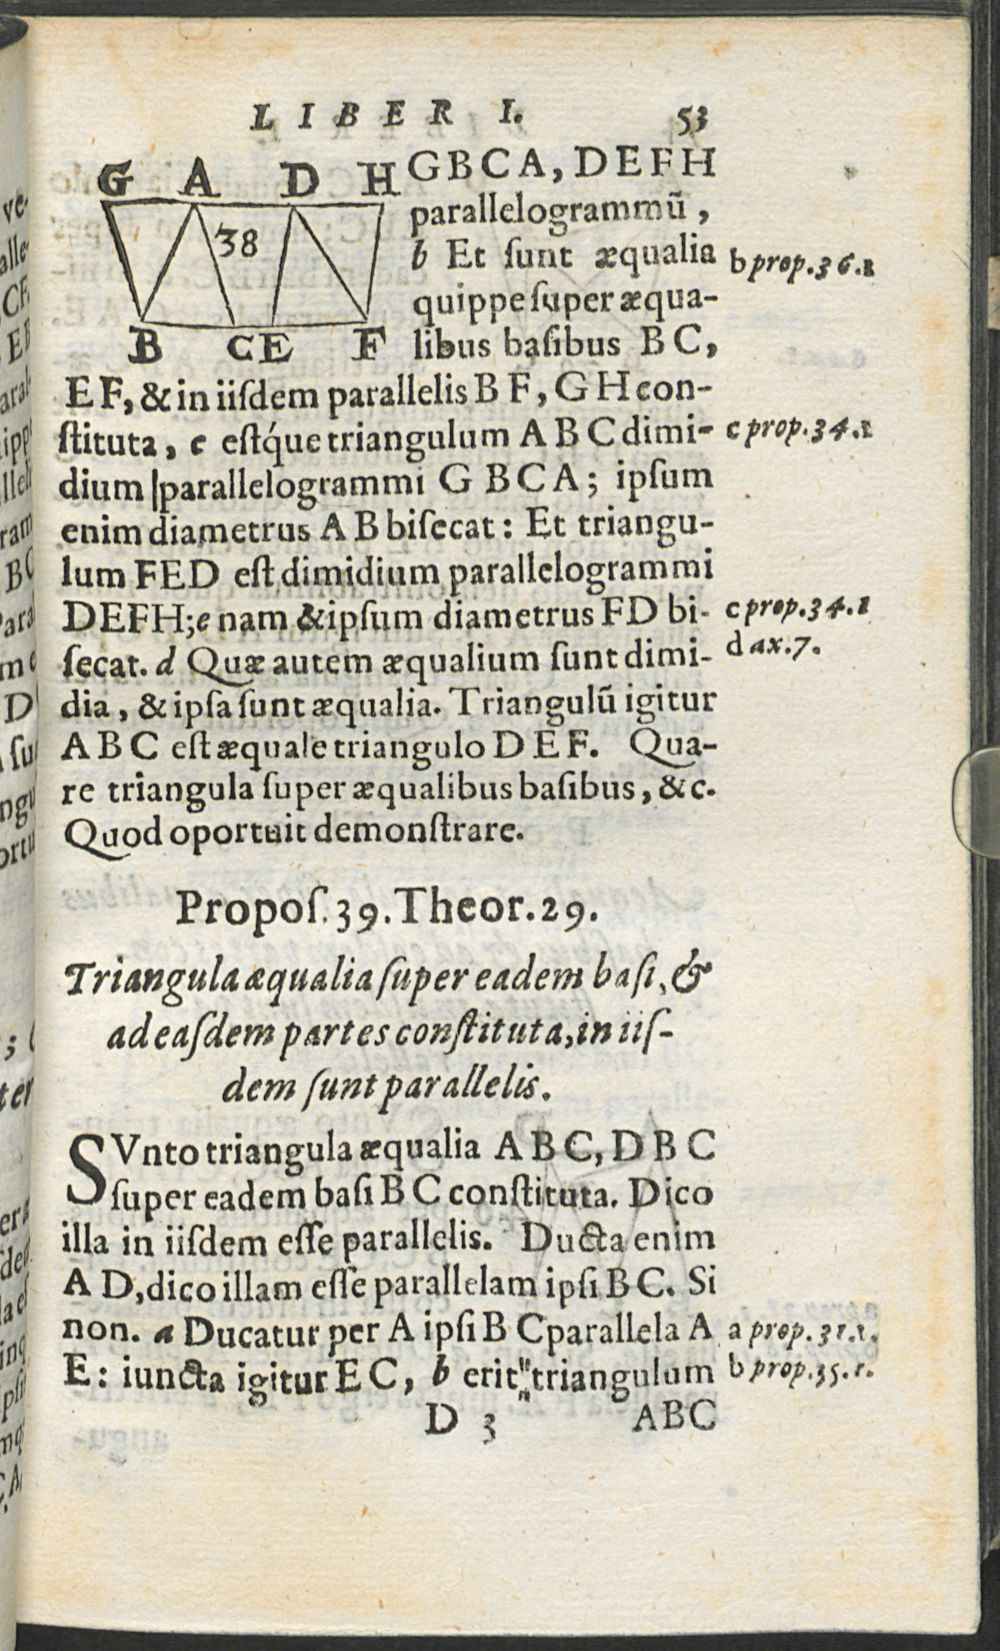 LIBER I. 53
G A D H
38
B C E F
GBCA, DEFH
parallelogrammū,
b Et ſunt æqualia
b prop. 36.1
quippe ſuper æqua-
libus baſibus BC,
EF, & in iiſdem parallelis BF, GH con-
ſtituta, c eſtq́ue triangulum ABC dimi-
c prop. 34.1
dium parallelogrammi GBCA; ipſum
enim diametrus AB biſecat: Et triangu-
lum FED eſt dimidium parallelogrammi
DEFH; e nam & ipſum diametrus FD bi-
c prop. 34.1
ſecat. d Quæ autem æqualium ſunt dimi-
d ax. 7.
dia, & ipſa ſunt æqualia. Triangulū igitur
ABC eſt æquale triangulo DEF. Qua-
re triangula ſuper æqualibus baſibus, &c.
Quod oportuit demonſtrare.
Propoſ. 39. Theor. 29.
Triangula æqualia ſuper eadem baſi, &
ad eaſdem partes conſtituta, in iiſ-
dem ſunt parallelis.
SVnto triangula æqualia ABC, DBC
ſuper eadem baſi BC conſtituta. Dico
illa in iiſdem eſſe parallelis. Ducta enim
AD, dico illam eſſe parallelam ipſi BC. Si
non. a Ducatur per A ipſi BC parallela A
a prop. 31.1.
E: iuncta igitur EC, b erit triangulum
b prop. 35.1.
D 3 ABC